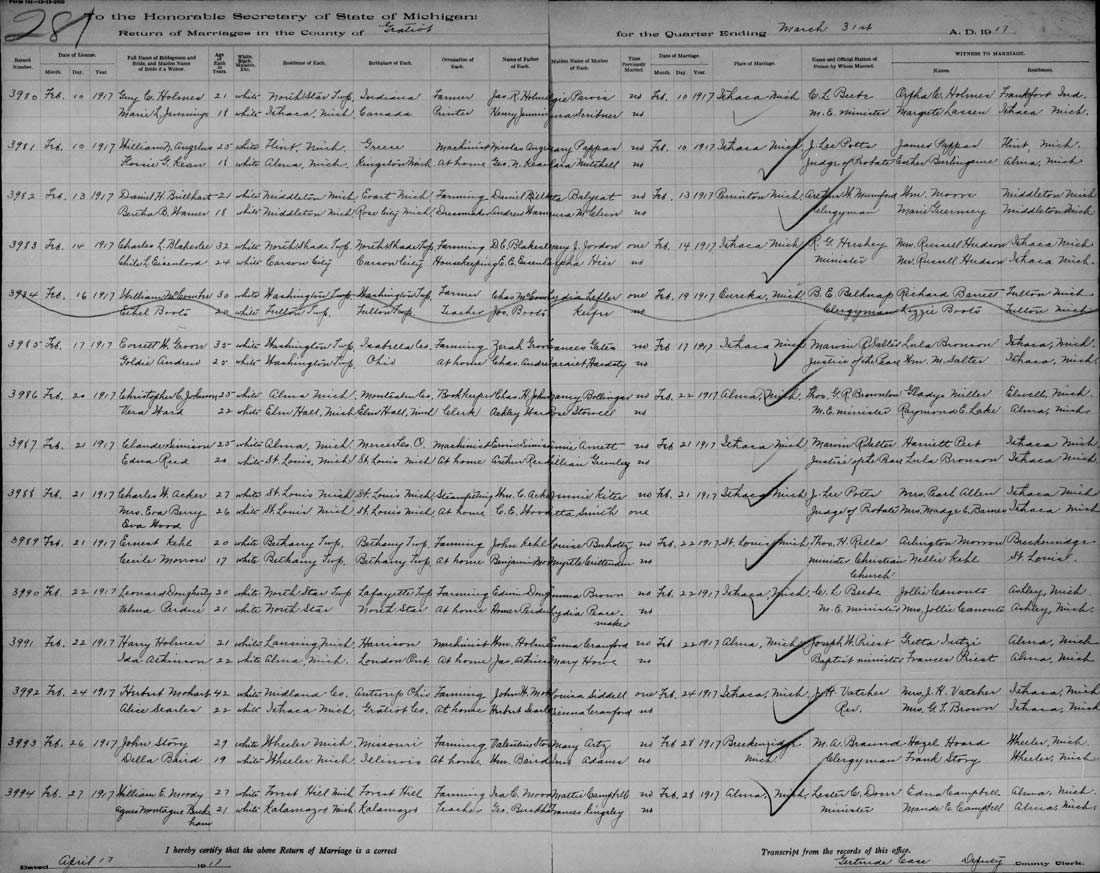 Form 143—12-18-2000
281
To the Honorable Secretary of State of Michigan:
Return of Marriages in the County of Gratiot for the Quarter Ending March 31st A. D. 1917
Record Number. Date of License. Full Name of Bridegroom and Bride, and Maiden Name of Bride if a Widow. Age of Each in Years. White, Black, Mulatto, Etc. Residence of Each. Birthplace of Each. Occupation of Each. Name of Father of Each. Maiden Name of Mother of Each. Time Previously Married. Date of Marriage. Place of Marriage. Name and Official Station of Person by Whom Married. WITNESS TO MARRIAGE.
Month. Day. Year. Month. Day. Year. Names. Residences.
3980 Feb. 10 1917 Guy C. Holmes 21 white North Star Twp. Indiana Farmer Jas. R. Holmes Parvis no Feb. 10 1917 Ithaca Mich C. L. Beebe Orpha C. Holmes Frankfort Ind.
Marie L. Jennings 18 white Ithaca, Mich Canada Printer Henry Jennings Scribner no M. E. minister Margrete Lassen Ithaca Mich.
3981 Feb. 10 1917 William N. Angelus 25 white Flint, Mich. Greece Machinist Nicolas Mary Pappas no Feb. 10 1917 Ithaca Mich J. Lee Potts James Pappas Flint, Mich.
G. Kean 18 white Alma, Mich. Kingston Mich At home Geo. N. Kean Mitchell no Judge of Probate Esther Burlingame Alma, Mich
3982 Feb. 13 1917 Daniel H. Billhart 21 white Middleton Mich Evart Mich. Farming Daniel no Feb. 13 1917 Perrinton Mich Arthur W. Mumford Wm. Moore Middleton Mich
Bertha B. Warner 18 white Middleton Mich Rose City Mich. Dressmaker Andrew no Clergyman Marie Guernsey Middleton Mich.
3983 Feb. 14 1917 Charles L. Blakeslee 32 white North Shade Twp. North Shade Twp. Farming D. C. Mary J. Jordon one Feb. 14 1917 Ithaca Mich R. G. Hershey Mrs. Russell Hudson Ithaca Mich
L. Eisenlord 24 white Carson City Carson City Housekeeping C. E. Hier no Minister Mr. Russell Hudson Ithaca Mich.
3984 Feb. 16 1917 William McComber 30 white Washington Twp. Washington Twp. Farmer Chas. Lydia Lefler one Feb. 19 1917 Eureka, Mich B. E. Belknap Richard Barrett Fulton Mich
Ethel Boots 20 white Fulton Twp. Fulton Twp. Teacher Jos. Boots no Clergyman Kizzie Boots Fulton Mich
3985 Feb. 17 1917 Everett H. Groom 35 white Washington Twp. Isabella Co. Farming no Feb. 17 1917 Ithaca Mich Marvin R. Salter Lula Bronson Ithaca, Mich.
Goldie Andree 25 white Washington Twp. Ohio At home Chas. Hardity no Justice of the Peace Wm. M. Salter Ithaca, Mich.
3986 Feb. 20 1917 Christopher C. Johnson 25 white Alma Mich Montcalm Co. Bookkeeper Chas. H. Nancy Bollinger no Feb. 22 1917 Alma, Mich Thos. G. R. Brownlow Gladys Miller Elwell, Mich.
Vera Ward 22 white Elm Hall, Mich Elm Hall, Mich Clerk Ashley Ward Rose Stowell no M. E. minister Raymond E. Lake Alma, Mich.
3987 Feb. 21 1917 Claude Simison 25 white Alma, Mich. Mercer Co. O. Machinist Arnett no Feb. 21 1917 Ithaca Mich Marvin R. Salter Harriett Peet Ithaca Mich
Edna Reed 20 white St. Louis, Mich St. Louis Mich At home Arthur Reed Lillian Greenley no Justice of the Peace Lula Bronson Ithaca Mich.
3988 Feb. 21 1917 Charles W. Acker 27 white St Louis Mich St. Louis Mich. Wm. C. Jennie no Feb. 21 1917 Ithaca Mich J. Lee Potts Mrs. Carl Allen Ithaca Mich
Mrs. Eva Berry 26 white St. Louis Mich. St. Louis Mich. At home C. E. Hood Etta Smith one Judge of Probate Mrs. Madge E. Barnes Ithaca Mich
Eva Hood
3989 Feb. 21 1917 Ernest Kehl 20 white Bethany Twp. Bethany Twp. Farming John Kehl Louise no Feb. 22 1917 St. Louis Mich. Thos. H. Pella Arlington Morrow Breckenridge
Cecile Morrow 17 white Bethany Twp. Bethany Twp. At home Benjamin Myrtle Crittenden no minister Christian Nellie Kehl St. Louis.
Church
3990 Feb. 22 1917 Leonard Dougherty 20 white North Star Twp Lafayette Twp. Farming Edwin Emma Brown no Feb. 22 1917 Ithaca, Mich C. L. Beebe Jollie Canouts Ashley, Mich
Velma Perdue 21 white North Star North Star At home Homer Perdue Lydia no M. E. minister Mrs. Jollie Canouts Ashley, Mich.
3991 Feb. 22 1917 Harry Holmes 21 white Lansing Mich Harrison Machinist Wm. Holmes Emma Crawford no Feb 22 1917 Alma, Mich Joseph W. Priest Gretta Alma, Mich
Ida Atkinson 22 white Alma, Mich. London Ont. At home Jas. Mary Howe no Baptist minister Frances Priest Alma, Mich
3992 Feb. 24 1917 Herbert Mohart 42 white Midland Co. Antwerp Ohio Farming John H. Louisa Siddell one Feb. 24 1917 Ithaca, Mich. J. H. Vatcher Mrs. J. H. Vatcher Ithaca, Mich
Alice Searles 22 white Ithaca Mich. Gratiot Co. At home Herbert Crawford no Rev. Mrs. G. S. Brown Ithaca, Mich
3993 Feb. 26 1917 John Story 29 white Wheeler Mich Missouri Farming Valentine Mary Artz no Feb. 28 1917 Breckenridge M. A. Braund Hazel Hoard Wheeler, Mich
Della Baird 19 white Wheeler Mich. Illinois At home Wm. Baird Adams no Mich Clergyman Frank Story Wheeler, Mich
3994 Feb. 27 1917 William E. Moody 27 white Forest Hill Mich Forest Hill Farming Ira E. Mattie Campbell no Feb. 28 1917 Alma, Mich Lester C. Doerr Edna Campbell Alma, Mich.
Agnes Montague 21 white Kalamazoo Mich. Kalamazoo Teacher Geo. Frances Kingsley no Minister Maude E. Campbell Alma, Mich.
ham
I hereby certify that the above Return of Marriage is a correct Transcript from the records of this office.
Dated April 17 1917 Gertrude Case Deputy County Clerk.